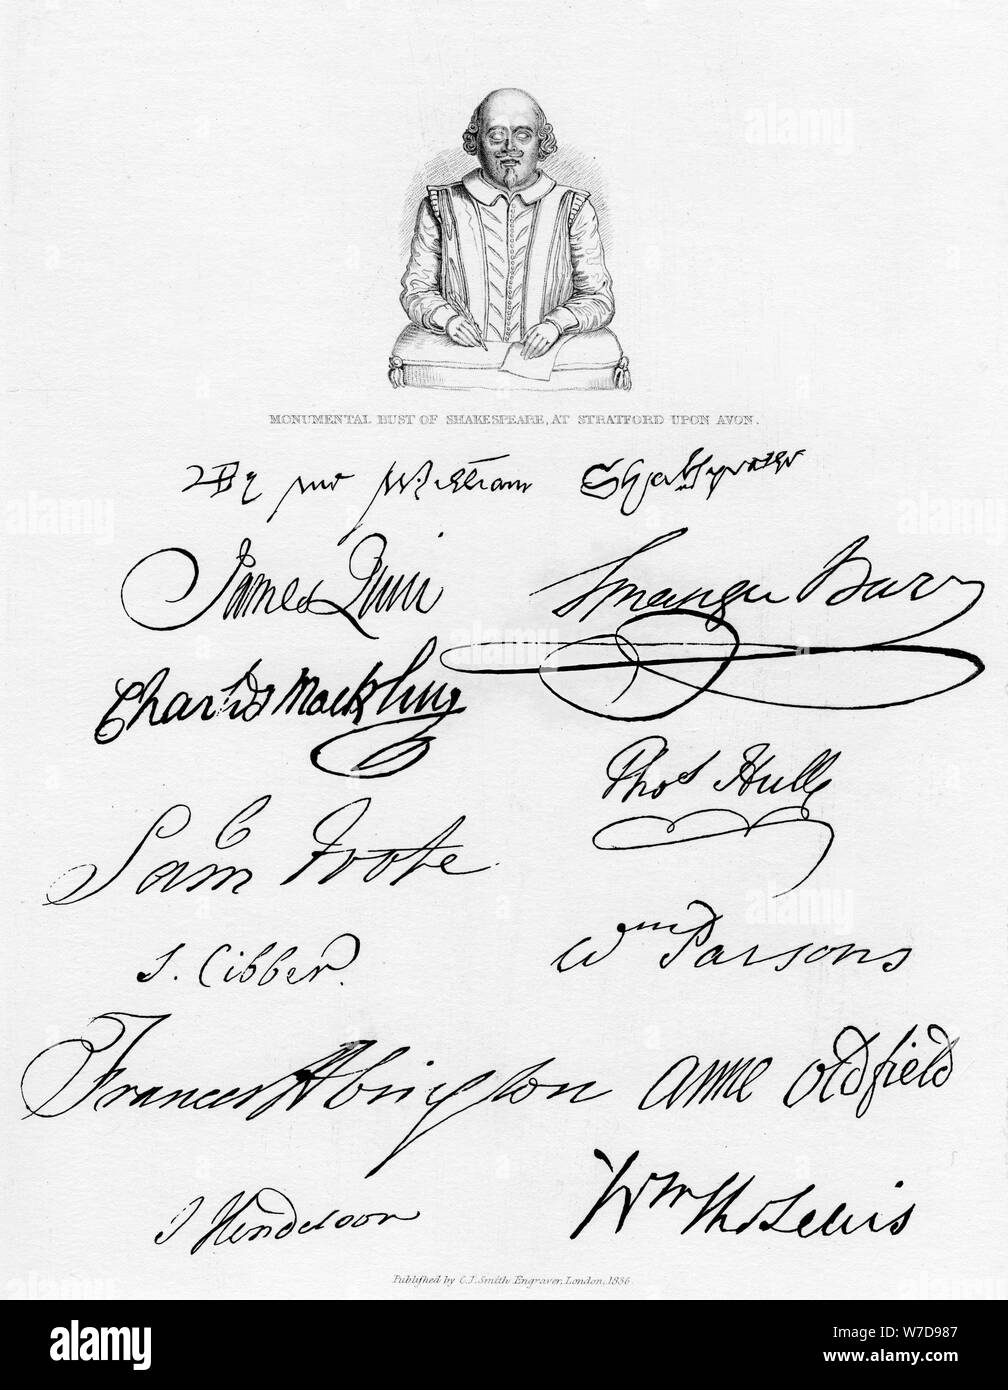 MONUMENTAL BUST OF SHAKESPEARE, AT STRATFORD UPON AVON.
By me William Shakspeare
James Quin
Spranger Barry
Charles Macklin
Thos Hull
Sam Foote
S. Cibber.
Wm Parsons
Frances Abington
Anne Oldfield
J Henderson
Wm Thos Lewis
Published by C. J. Smith Engraver, London, 1836
alamy
Image ID: W7D987
www.alamy.com